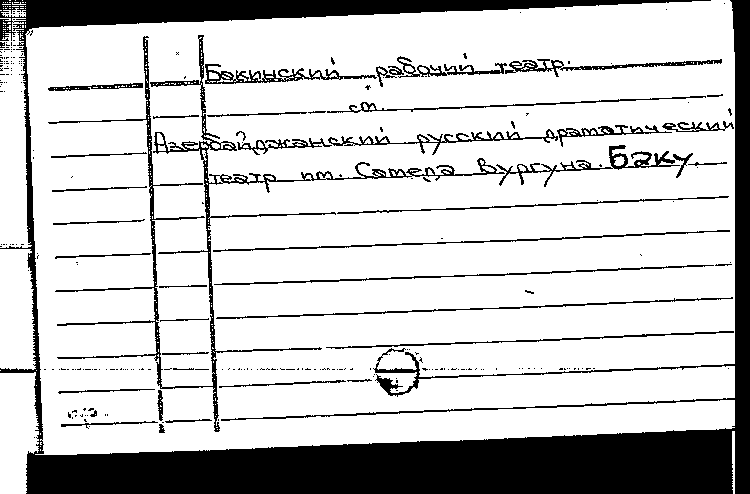 Бакинский рабочий театр.
см.
Азербайджанский русский драматический
театр им. Самеда Вургуна. Баку.